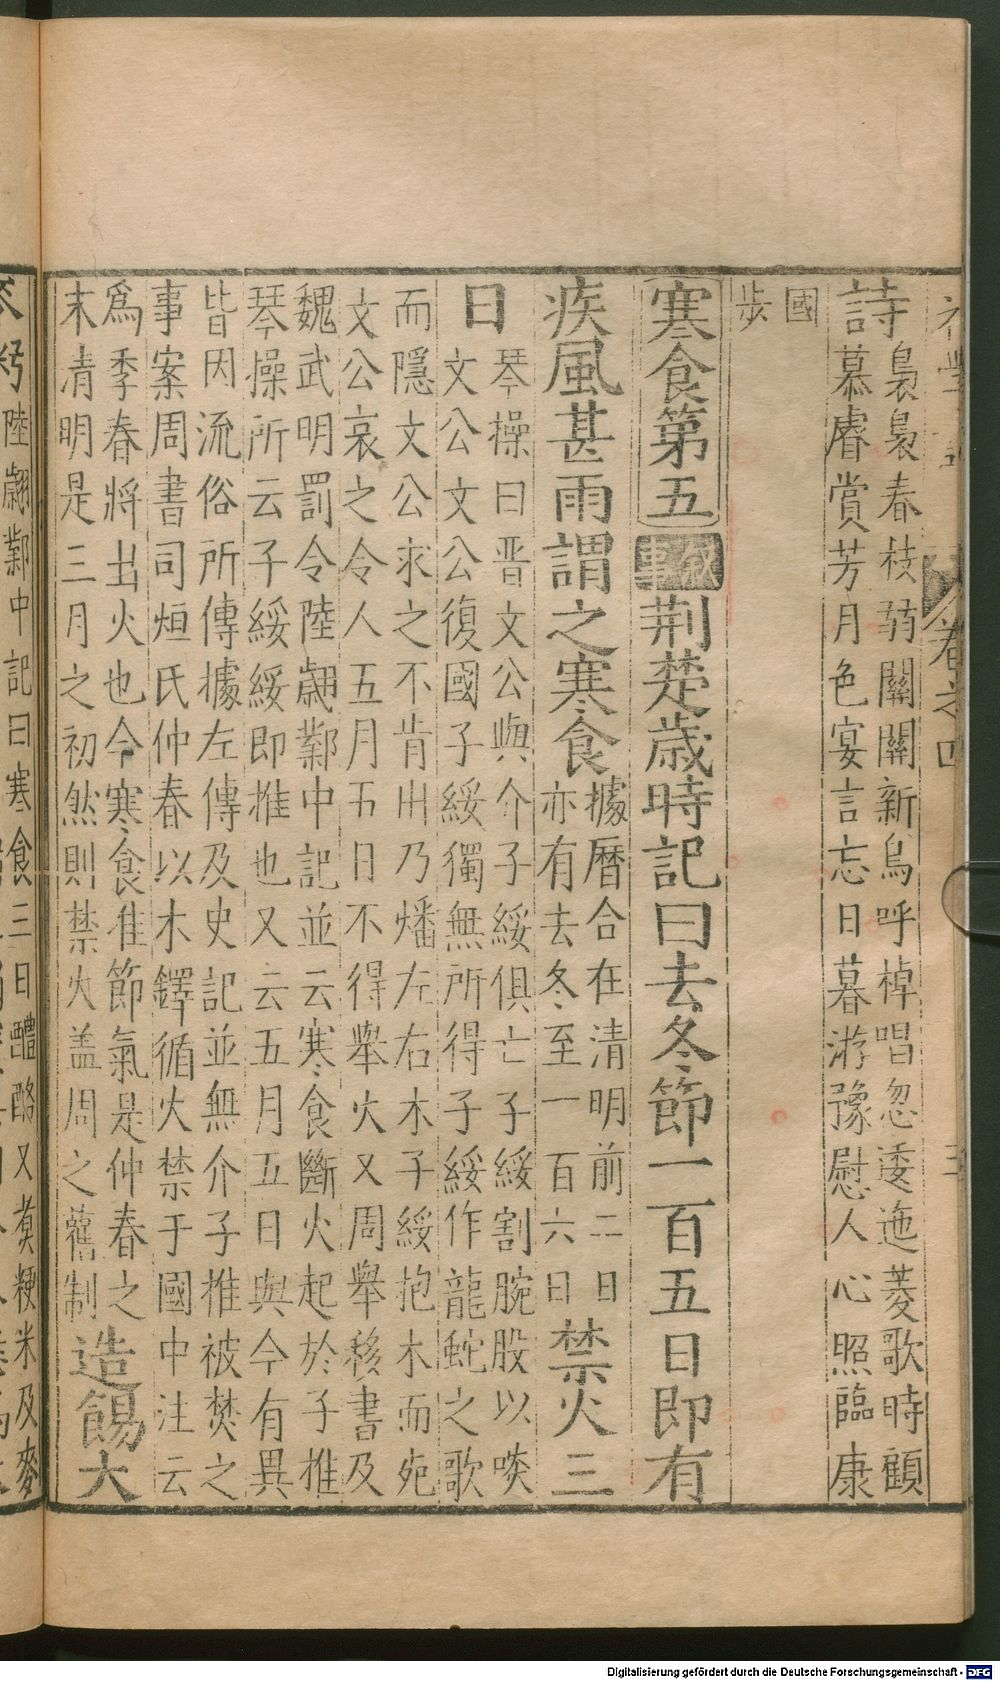 詩
裊裊春枝弱關關新鳥呼棹唱忽逶迤菱歌時顧
慕睿賞芳月色宴言忘日暮游豫慰人心照臨康
國
步
寒食第五 敘事 荆楚歲時記曰去冬節一百五日即有
疾風甚雨謂之寒食
據曆合在清明前二日
亦有去冬至一百六日
禁火三
日
琴操曰晋文公與介子綏俱亡子綏割腕股以啖
文公文公復國子綏獨無所得子綏作龍蛇之歌
而隱文公求之不肯出乃燔左右木子綏抱木而死
文公哀之令人五月五日不得舉火又周舉移書及
魏武明罰令陸翽鄴中記並云寒食斷火起於子推
琴操所云子綏綏即推也又云五月五日與今有異
皆因流俗所傳據左傳及史記並無介子推被焚之
事案周書司烜氏仲春以木鐸循火禁于國中注云
爲季春將出火也今寒食准節氣是仲春之
末清明是三月之初然則禁火盖周之舊制
造餳大
陸翽鄴中記曰寒食三日醴酪又煑粳米及麥
卷之四
三
Digitalisierung gefördert durch die Deutsche Forschungsgemeinschaft - DFG